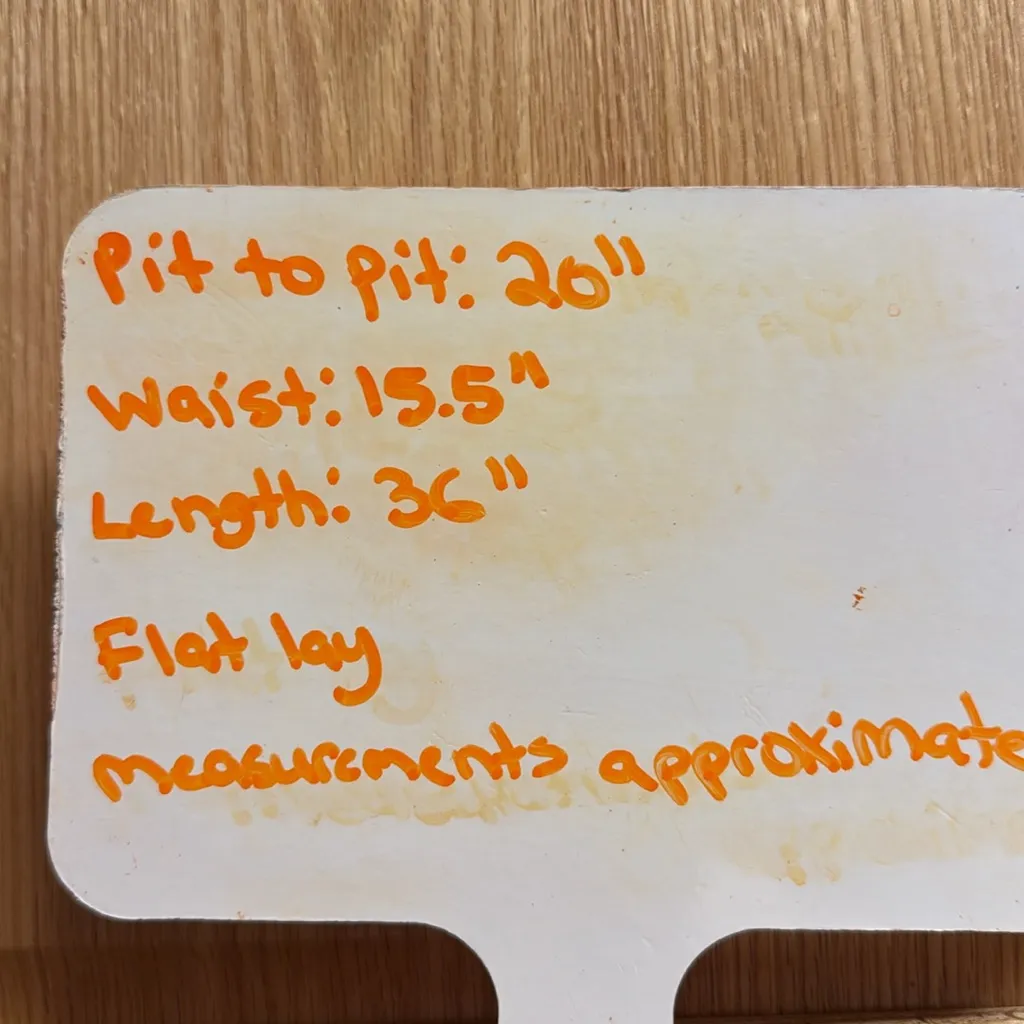 Pit to pit: 20"
Waist: 15.5"
Length: 36"
Flat lay
measurements approximate